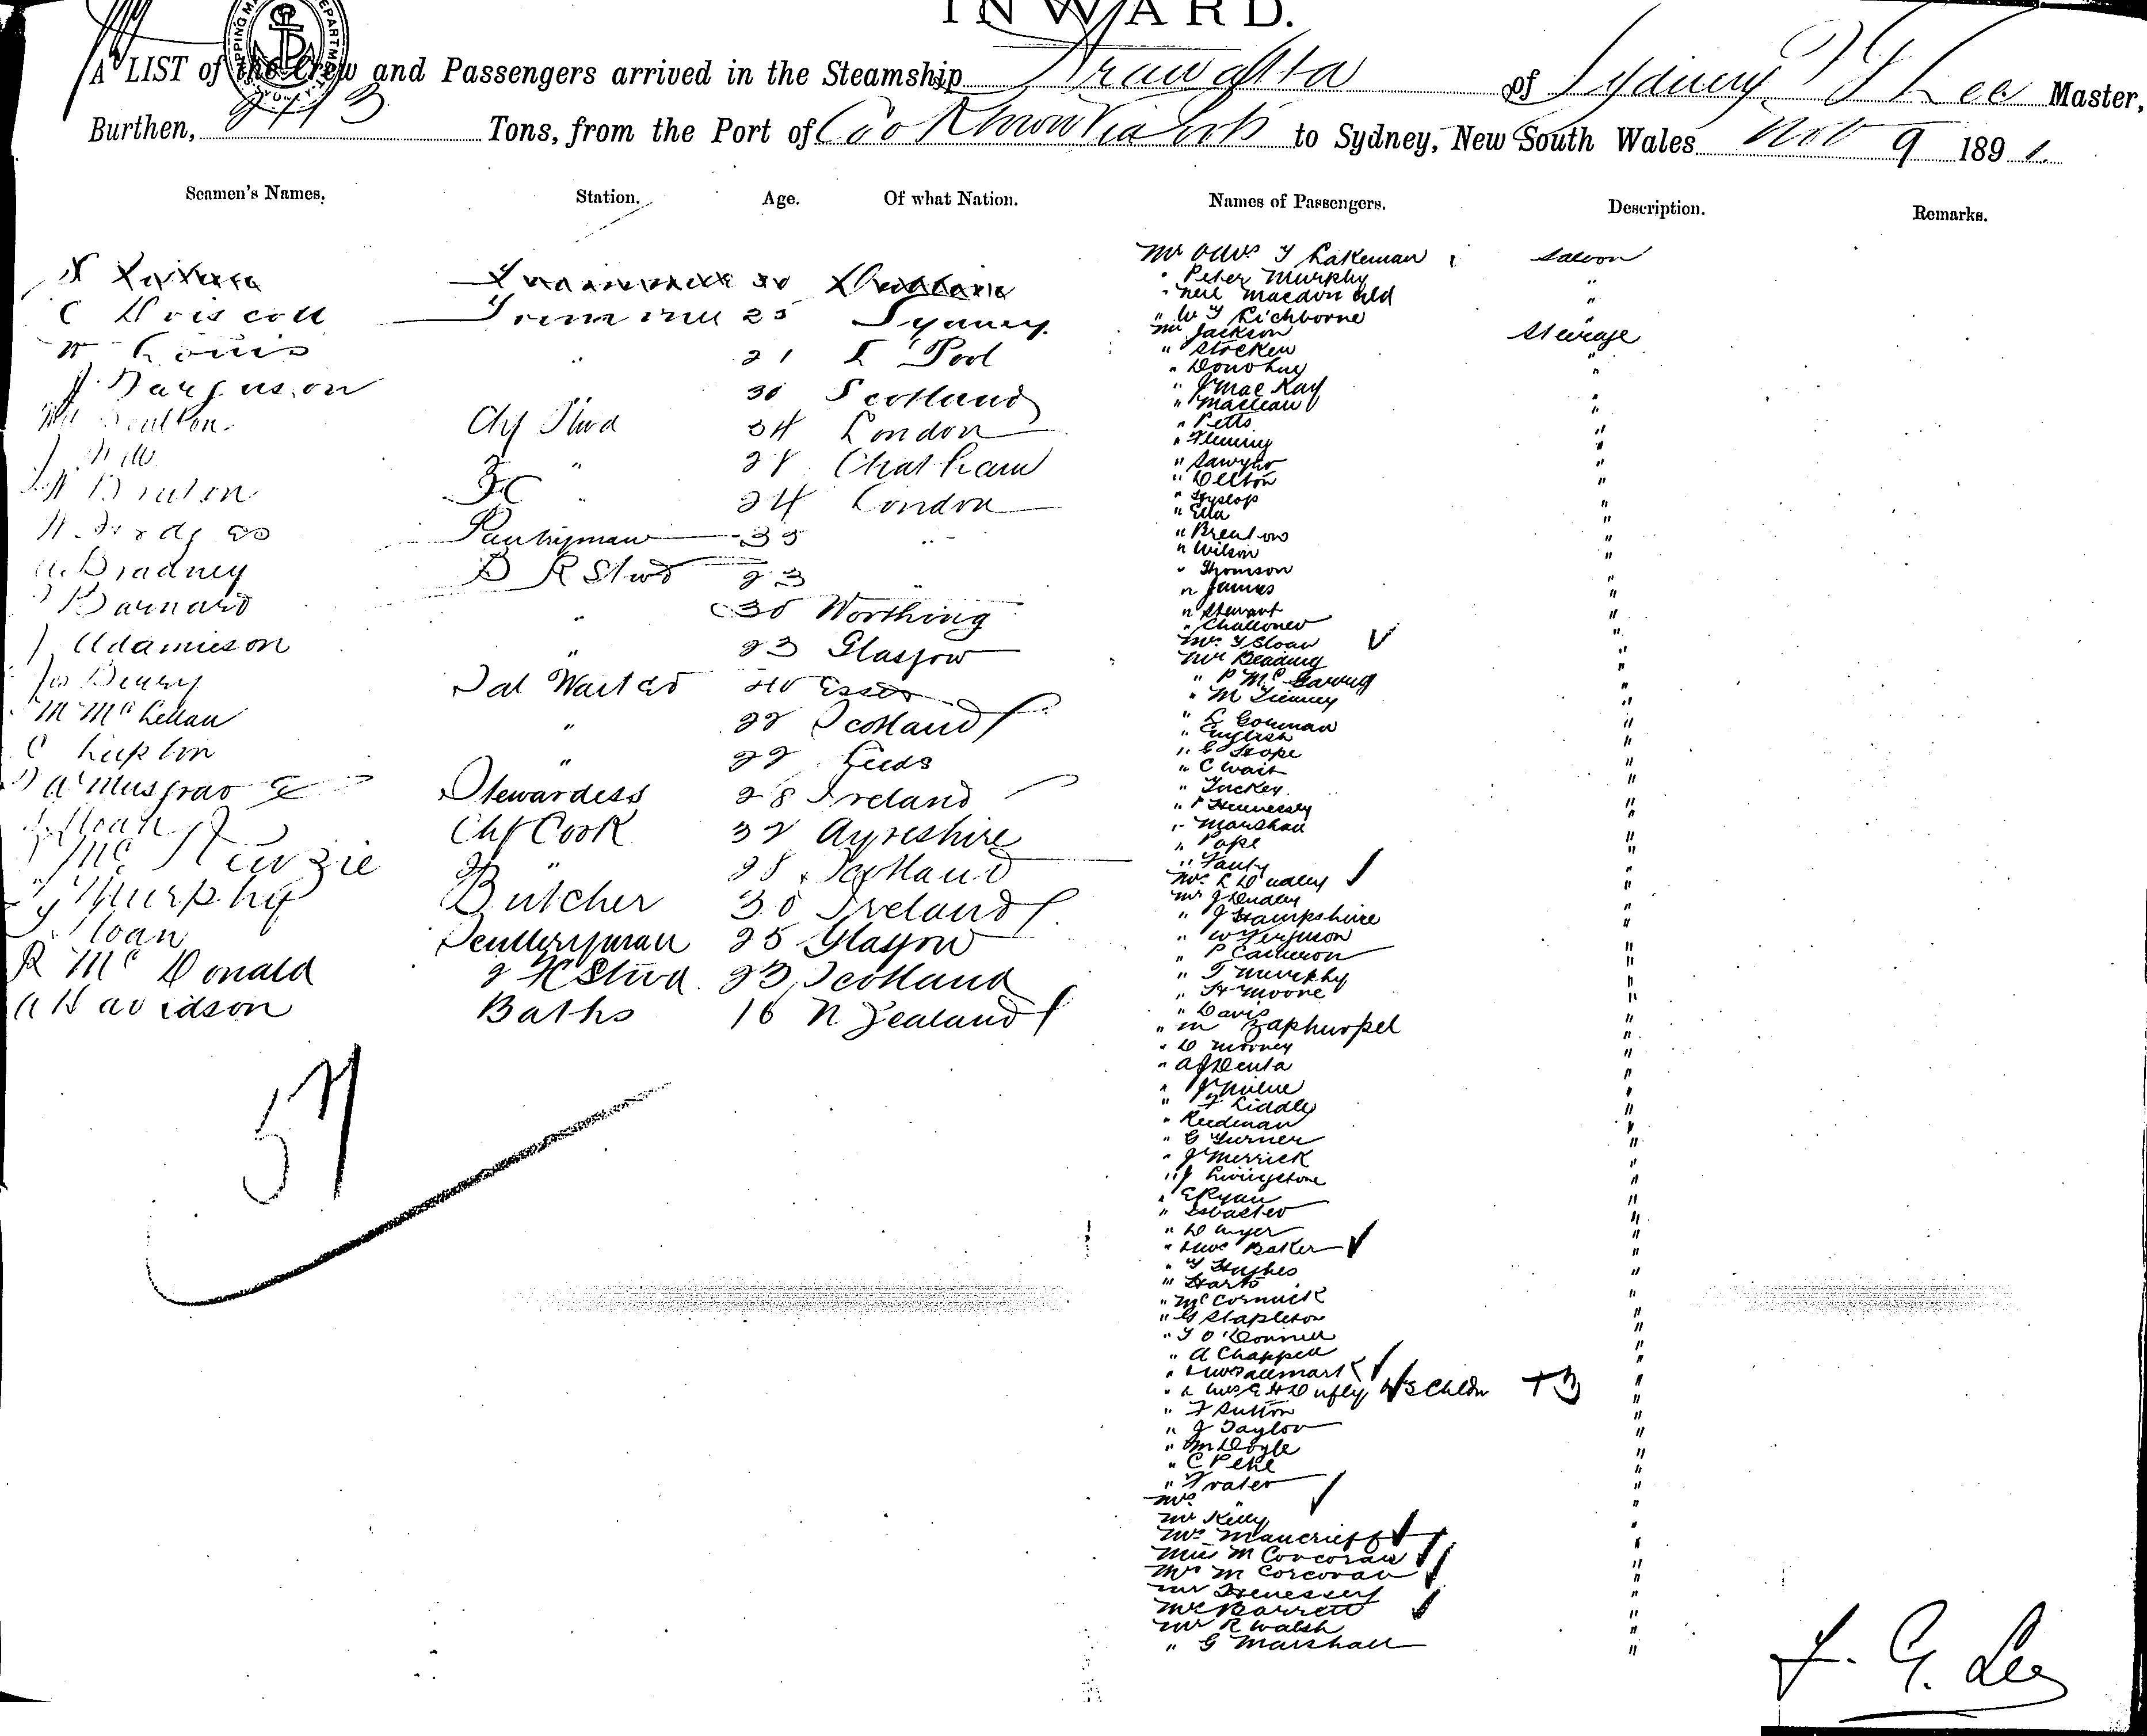 INWARD.
A LIST of the Crew and Passengers arrived in the Steamship Arawatta of Sydney, Lee Master,
Burthen, 2113 Tons, from the Port of Cooktown Via Ports to Sydney, New South Wales Nov 9 1891.
Seamen's Names. Station. Age. Of what Nation. Names of Passengers. Description. Remarks.
C Driscoll Trimmer 25 Sydney
W Louis " 21 L Pool
J Farguson 30 Scotland
Chf Stwd 34 London
" 28 Chatham
" 24 London
Pantryman 35 "
A. Bradney B R Stwd 23 "
Barnard " 30 Worthing
J Adamieson " 23 Glasgow
Sal Waiter 40 Essex
M McLellan " 22 Scotland
C Lupton " 22 Leeds
A Musgrave Stewardess 28 Ireland
Sloan Chf Cook 32 Ayreshire
McKenzie 2 " 28 Scotland
Murphy Butcher 30 Ireland
Sloan Sculleryman 25 Glasgow
R McDonald 2 C Stwd 23 Scotland
A Davidson Baths 16 N Zealand
57
Lakeman Saloon
" Peter Murphy "
" Neil Macdonald "
" W T Lichborne "
Mr Jackson Steerage
" Stocken "
" Donohue "
" J MacKay "
" Maclean "
" Petts "
" Fleming "
" Sawyer "
" Delton "
" Hyslop "
" Ella "
" Brenton "
" Wilson "
" Thomson "
" James "
" Stewart "
" Challoner "
Mrs T Sloan "
Mr Beading "
" P McGarvey "
" M Tierney "
" L Gorman "
" English "
" G Hope "
" C Wait "
" Tuckey "
" P Hennessy "
" Marshall "
" Pope "
" Fauty "
Mrs L Dudley "
Mr J Dudley "
" J Hampshire "
" W Ferguson "
" P Cameron "
" T Murphy "
" H Moore "
" Davis "
" M Zaphurpel "
" D Mooney "
" A J Denta "
" J Milne "
" F Liddle "
" Reedman "
" G Turner "
" J Merrick "
" J Livingstone "
" E Ryan "
" Isbaster "
" D Wyer "
" Mrs Baker "
" T Hughes "
" Harts "
" McCormick "
" G Stapleton "
" T O'Donnell "
" A Chappell "
" Mrs Allmark "
" & Mrs E H Dufly, & 3 Chldn +3 "
" F Sutton "
" J Taylor "
" M Doyle "
" C Pene "
" Frater "
Mrs " "
Mr Kelly "
Mrs Mancrieff "
Miss M Corcoran "
Mrs M Corcoran "
Mr Henessey "
Mrs Barrett "
Mr R Walsh "
" G Marshall "
J. G. Lee